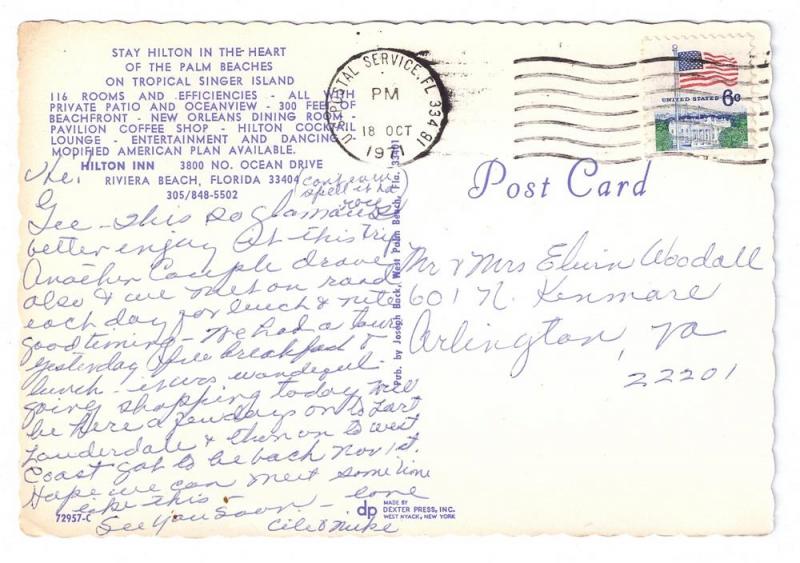 STAY HILTON IN THE HEART
OF THE PALM BEACHES
ON TROPICAL SINGER ISLAND
116 ROOMS AND EFFICIENCIES - ALL WITH
PRIVATE PATIO AND OCEANVIEW - 300 FEET OF
BEACHFRONT - NEW ORLEANS DINING ROOM -
PAVILION COFFEE SHOP - HILTON COCKTAIL
LOUNGE - ENTERTAINMENT AND DANCING
MODIFIED AMERICAN PLAN AVAILABLE.
HILTON INN 3800 NO. OCEAN DRIVE
RIVIERA BEACH, FLORIDA 33404
305/848-5502
Gee - this so glamorous
better enjoy at this trip
Another Couple drove
also & we met on road
each day for lunch & nite
good timing - We had a tour
yesterday free breakfast &
lunch - it was wonderful
going shopping today will
be here a few days on to Fort
Lauderdale & then on to west
Coast got to be back Nov 1st.
Hope we can meet some time
like this
See You Soon - Love
& Mike
72957-C
U.S. POSTAL SERVICE, FL 334 81
PM
18 OCT
1971
UNITED STATES 6c
Post Card
Pub. by Joseph Back, West Palm Beach, Fla. 33401
Mr & Mrs Elwin Woodall
601 N. Kenmare
Arlington, Va
22201
dp MADE BY
DEXTER PRESS, INC.
WEST NYACK, NEW YORK